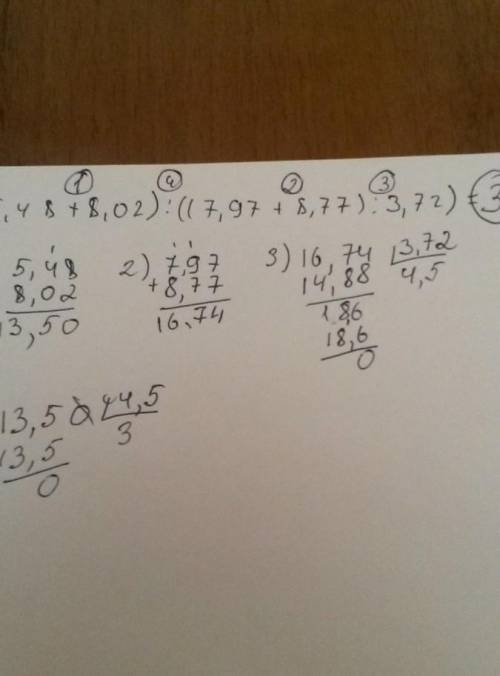 ① ④ ② ③
,48 + 8,02) : ((7,97 + 8,77) : 3,72) = 3
5,48
8,02
13,50
2) 7,97
+ 8,77
16,74
3) 16,74 3,72
14,88 4,5
1,86
18,6
0
13,50 4,5
13,5 3
0